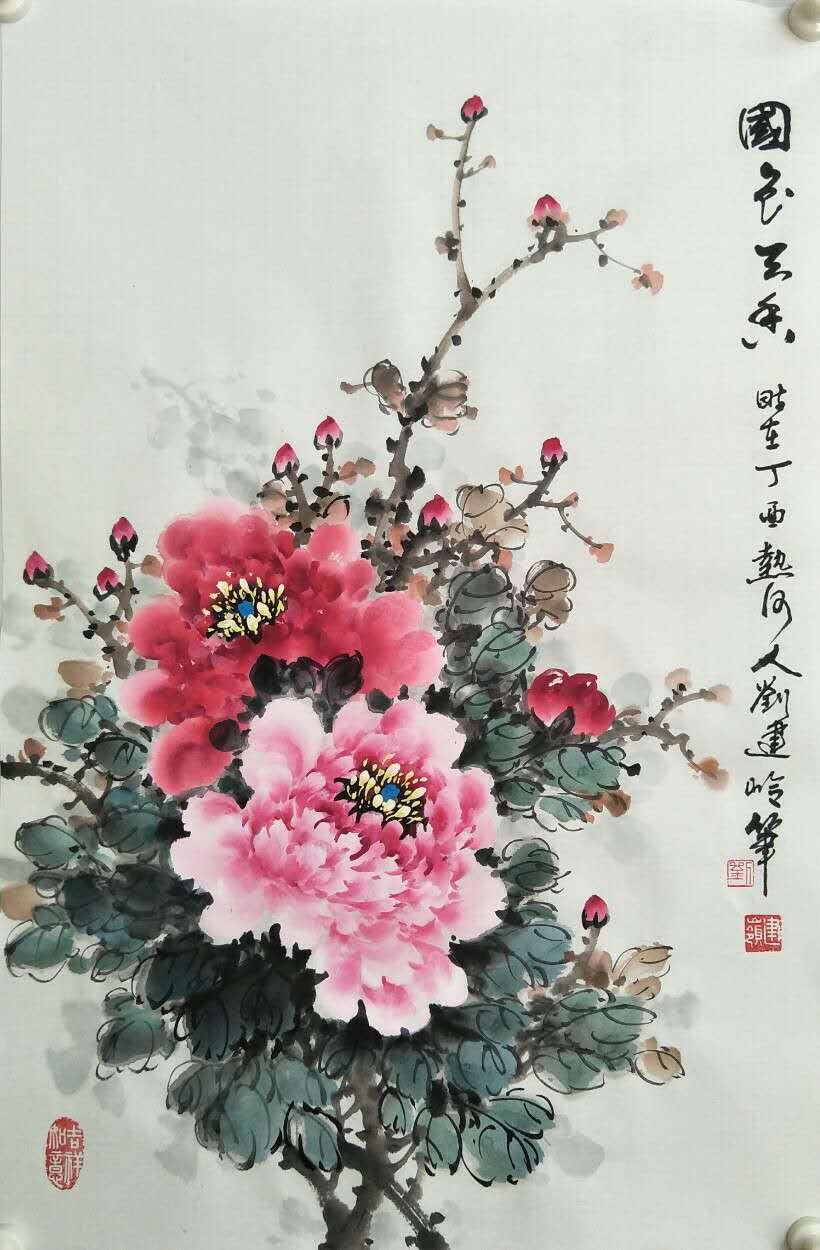 國色天香
時在丁酉熱河人劉建岭筆
劉
建嶺
吉祥如意